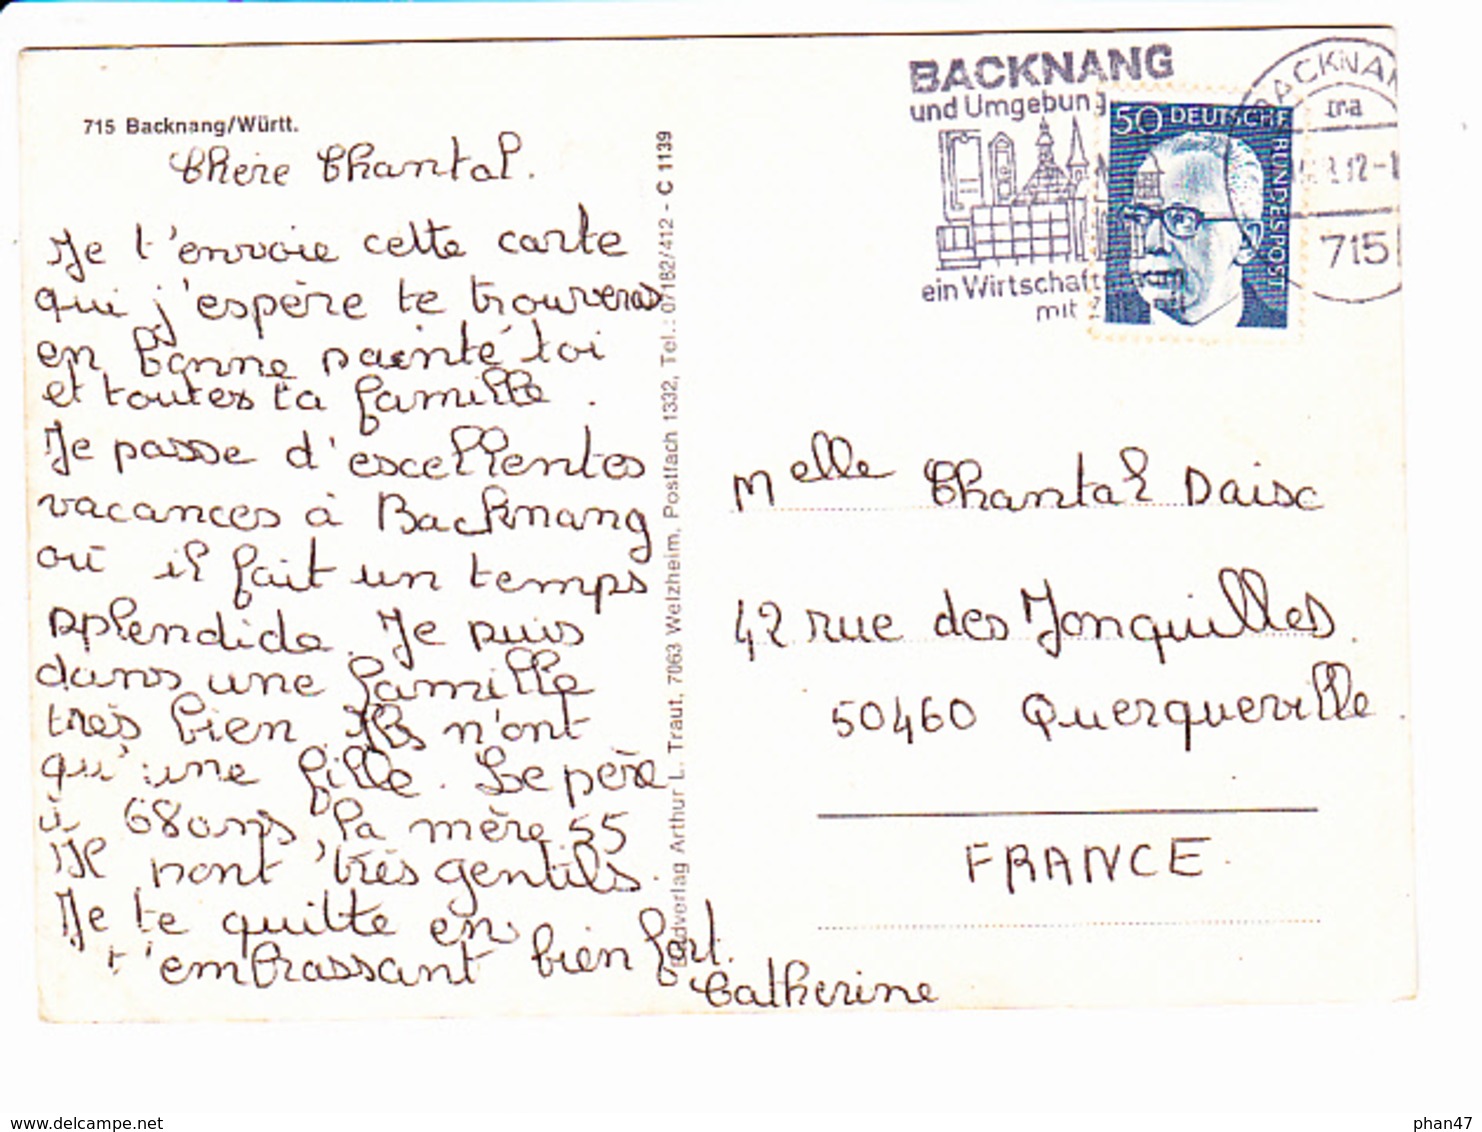 715 Backnang/Württ.
Chère Chantal.
Je t'envoie cette carte
qui j'espère te trouveras
en bonne sainté toi
et toutes ta famille.
Je passe d'excellentes
vacances à Backnang
où il fait un temps
splendide. Je suis
dans une famille
très bien. Ils n'ont
qu'une fille. Le père
a 68 ans, la mère 55
Il sont très gentils.
Je te quitte en
t'embrassant bien fort.
Catherine
Bildverlag Arthur L. Traut, 7063 Welzheim, Postfach 1332, Tel.: 07182/412 - C 1139
BACKNANG
und Umgebung
ein Wirtschafts
mit
50 DEUTSCHE
BUNDESPOST
BACKNAN
12-1
715
Melle Chantal Daisc
42 rue des Jonquilles.
50460 Querqueville.
FRANCE.
www.delcampe.net
phan47